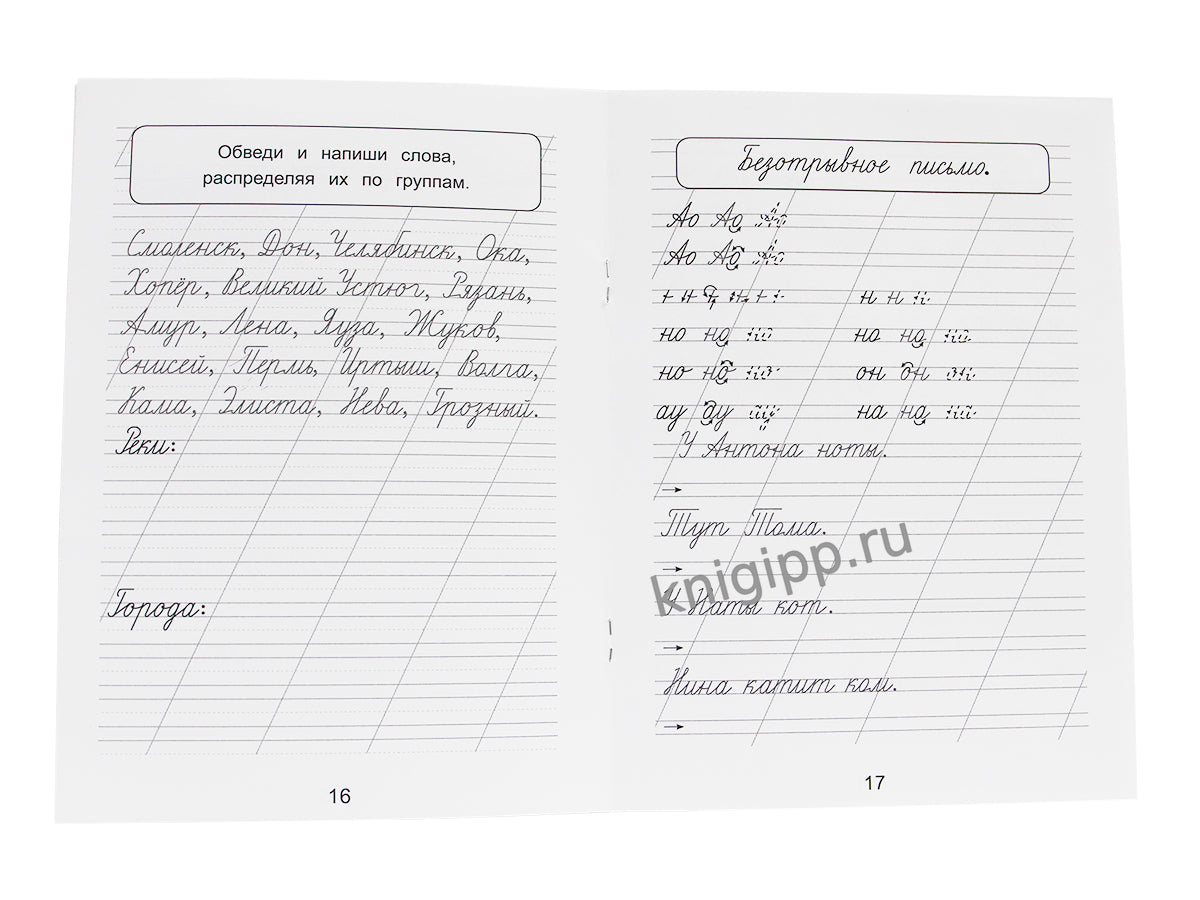 Обведи и напиши слова,
распределяя их по группам.
Смоленск, Дон, Челябинск, Ока,
Хопёр, Великий Устюг, Рязань,
Амур, Лена, Яуза, Жуков,
Енисей, Пермь, Иртыш, Волга,
Кама, Элиста, Нева, Грозный.
Реки:
Города:
16
Безотрывное письмо.
Ао Ао Ао
Ао Ао Ао
н н н
но но но но но но
но но но он он он
ау ау ау на на на
У Антона ноты.
Тут Тома.
У Наты кот.
Нина катит ком.
17
knigipp.ru